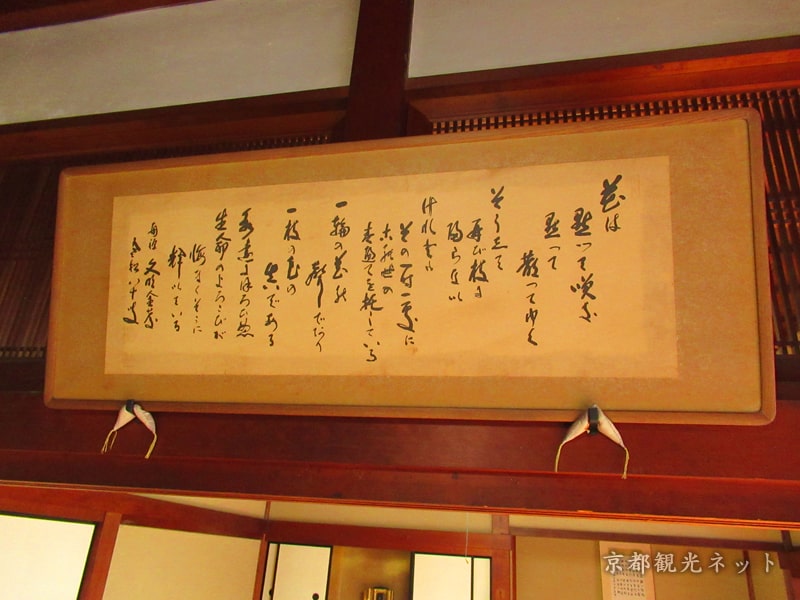 花は
黙って咲き
黙って
散って行く
そうして
再び枝に
帰らない
けれども
その一時一処に
この世の
すべてを托している
一輪の花の
聲であり
一枝の花の
真である
永遠にほろびぬ
生命のよろこびが
悔なくそこに
輝いている
京都観光ネット